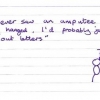 ever saw an amputee
hanged, I'd probably ju
out letters"